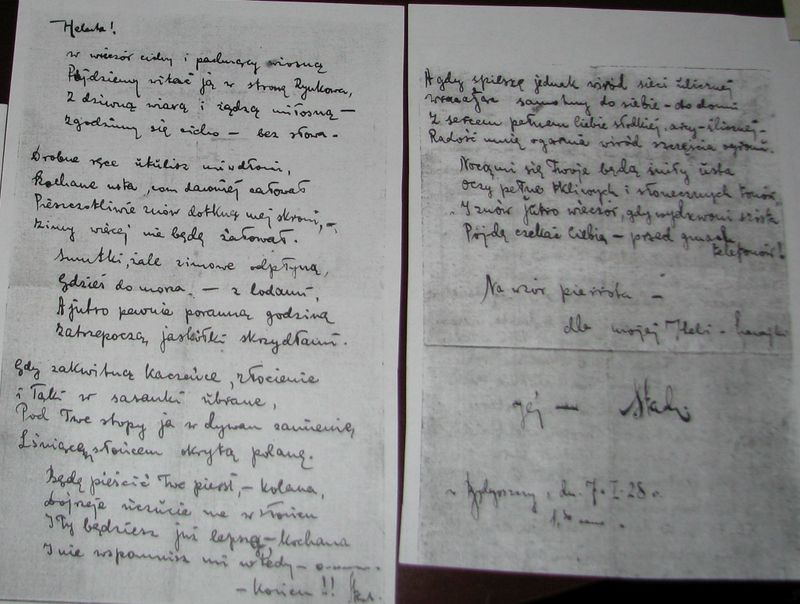 Helenka!
w wieczór cichy i pachnący wiosną
Pójdziemy witać ją w stronę Rynkowa,
Z dziwną wiarą i żądzą miłosną —
Zgodzimy się cicho — bez słowa.
Drobne ręce utulisz mi w dłoni,
Kochane usta, com dawniej całował
Pieszczotliwie znów dotkną mej skroni, —
Zimy więcej nie będę żałował.
Smutki, żale zimowe odpłyną,
Gdzieś do morza — z lodami,
A jutro pewnie poranną godziną
Zatrzepoczą jaskółki skrzydłami.
Gdy zakwitną kaczeńce, złocienie
i łąki w sasanki ubrane,
Pod Twe stopy ja w dywan zamienię
Lśniącą słońcem okrytą polanę.
Będę pieścić Twe pierś, — kolana,
Dojrzeje uczucie me w słońcu
I Ty będziesz już lepszą — Kochana
I nie wspomnisz mi wtedy —
— Koniec !!
A gdy spieszę jednak wśród sieci ulicznej
wracając samotny do siebie — do domu
Z sercem pełnem Ciebie słodkiej, — ślicznej —
Radość mnię ogarnia wśród szczęścia
Nocami się Twoje będą śniły usta
Oczy pełne tkliwych i słonecznych tonów,
I znów jutro wieczór, gdy wydzwoni szósta
Pójdę czekać Ciebie — przed gmach
telefonów!
Na wzór pierrota —
dla mojej Heli —
— Stach
w Bydgoszczy, dn. 7-I-28 r.